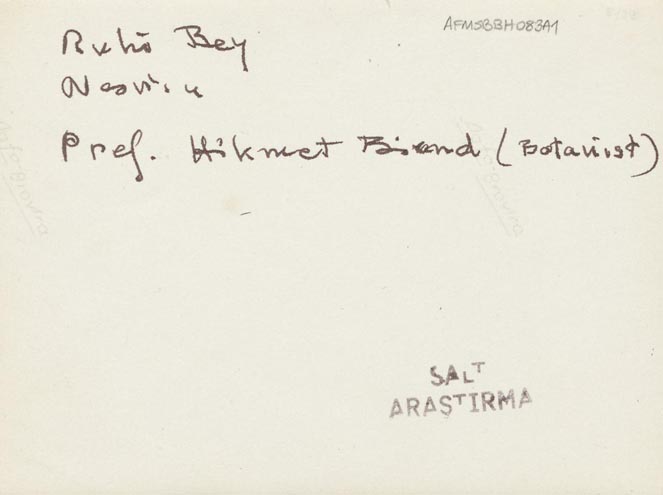 AFMSBBH083A1
Ruhi Bey
Prof. Hikmet Birand (Botanist)
SALT
ARAŞTIRMA